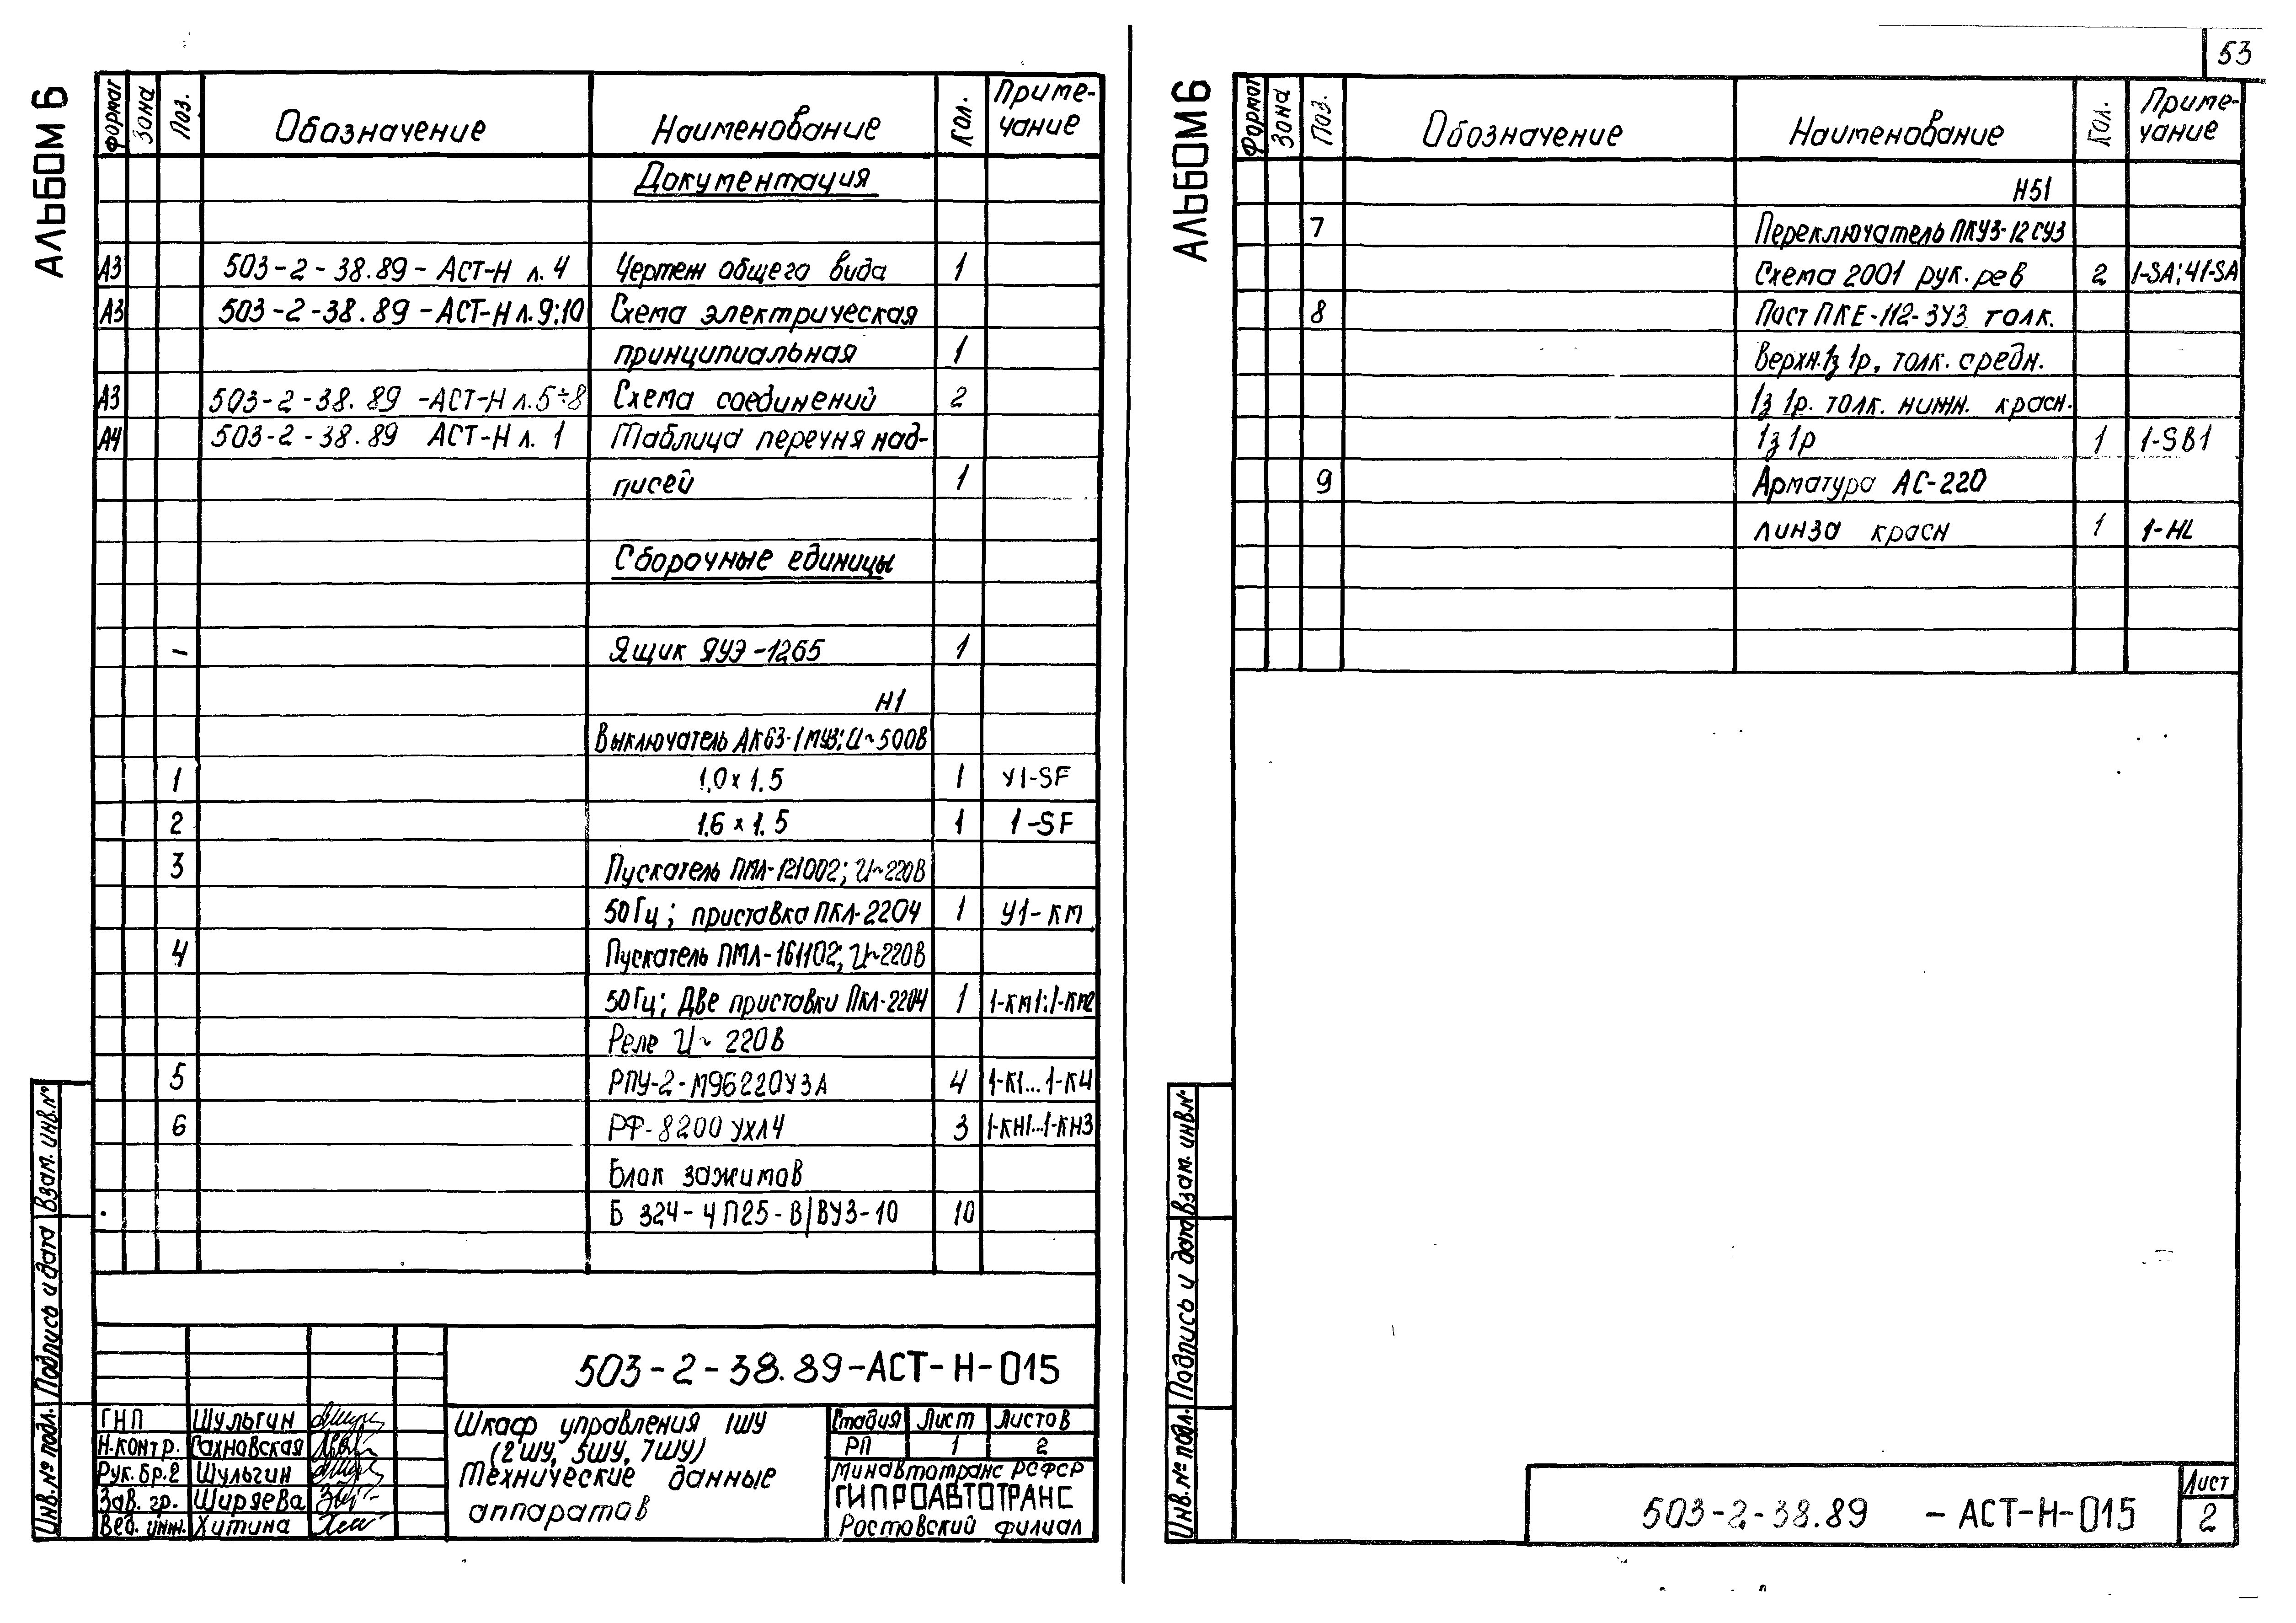 53
АЛЬБОМ 6
Формат Зона Поз. Обозначение Наименование Кол. Приме-
чание
Документация
А3 503-2-38.89-АСТ-Н л.4 Чертеж общего вида 1
А3 503-2-38.89-АСТ-Н л.9;10 Схема электрическая
принципиальная 1
А3 503-2-38.89-АСТ-Н л.5÷8 Схема соединений 2
А4 503-2-38.89 АСТ-Н л. 1 Таблица перечня над-
писей 1
Сборочные единицы
- Ящик ЯУЭ-1265 1
Н1
Выключатель АК63-1МУ3; U~500В
1 1.0х1.5 1 У1-SF
2 1.6х1.5 1 1-SF
3 Пускатель ПМЛ-121002; U~220В
50Гц; приставка ПКЛ-2204 1 У1-КМ
4 Пускатель ПМЛ-161102; U~220В
50Гц; Две приставки ПКЛ-2204 1 1-КМ1;1-КМ2
Реле U~ 220В
5 РПУ-2-М96220У3А 4 1-К1...1-К4
6 РФ-8200 УХЛ4 3 1-КН1...1-КН3
Блок зажимов
Б 324-4П25-В/ВУ3-10 10
Инв.№ подл. Подпись и дата Взам. инв.№
503-2-38.89-АСТ-Н-015
ГНП Шульгин
Н.контр. Сахновская
Рук.бр.2 Шульгин
Зав. гр. Ширяева
Вед. инж. Хитина
Шкаф управления 1ШУ
(2ШУ, 5ШУ, 7ШУ)
Технические данные
аппаратов
Стадия Лист Листов
РП 1 2
Минавтотранс РСФСР
ГИПРОАВТОТРАНС
Ростовский филиал
АЛЬБОМ 6
Формат Зона Поз. Обозначение Наименование Кол. Приме-
чание
Н51
7 Переключатель ПКУ3-12СУ3
Схема 2001 рук. рев 2 1-SA;41-SA
8 Пост ПКЕ-112-3У3 толк.
Верхн.1з 1р, толк. средн.
1з 1р. толк. нижн. красн.
1з 1р 1 1-SB1
9 Арматура АС-220
линза красн 1 1-HL
Инв.№ подл. Подпись и дата Взам. инв.№
503-2-38.89 -АСТ-Н-015
Лист
2